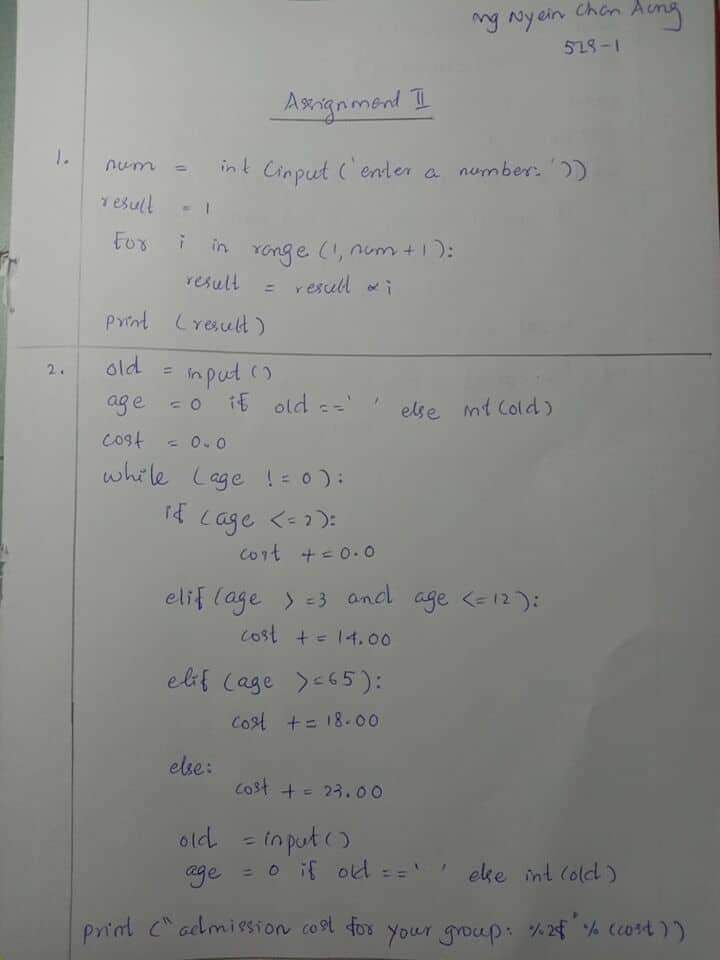 Mg Nyein Chan Aung
528-1
Assignment II
1. num = int (input ('enter a number: '))
result = 1
for i in range (1, num+1):
result = result * i
print (result)
2. old = input ()
age = 0 if old ==' ' else int (old)
cost = 0.0
while (age != 0):
if (age <= 2):
cost += 0.0
elif (age >=3 and age <=12):
cost += 14.00
elif (age >=65):
cost += 18.00
else:
cost += 23.00
old = input ()
age = 0 if old ==' ' else int (old)
print ("admission cost for your group: %2f" % (cost))